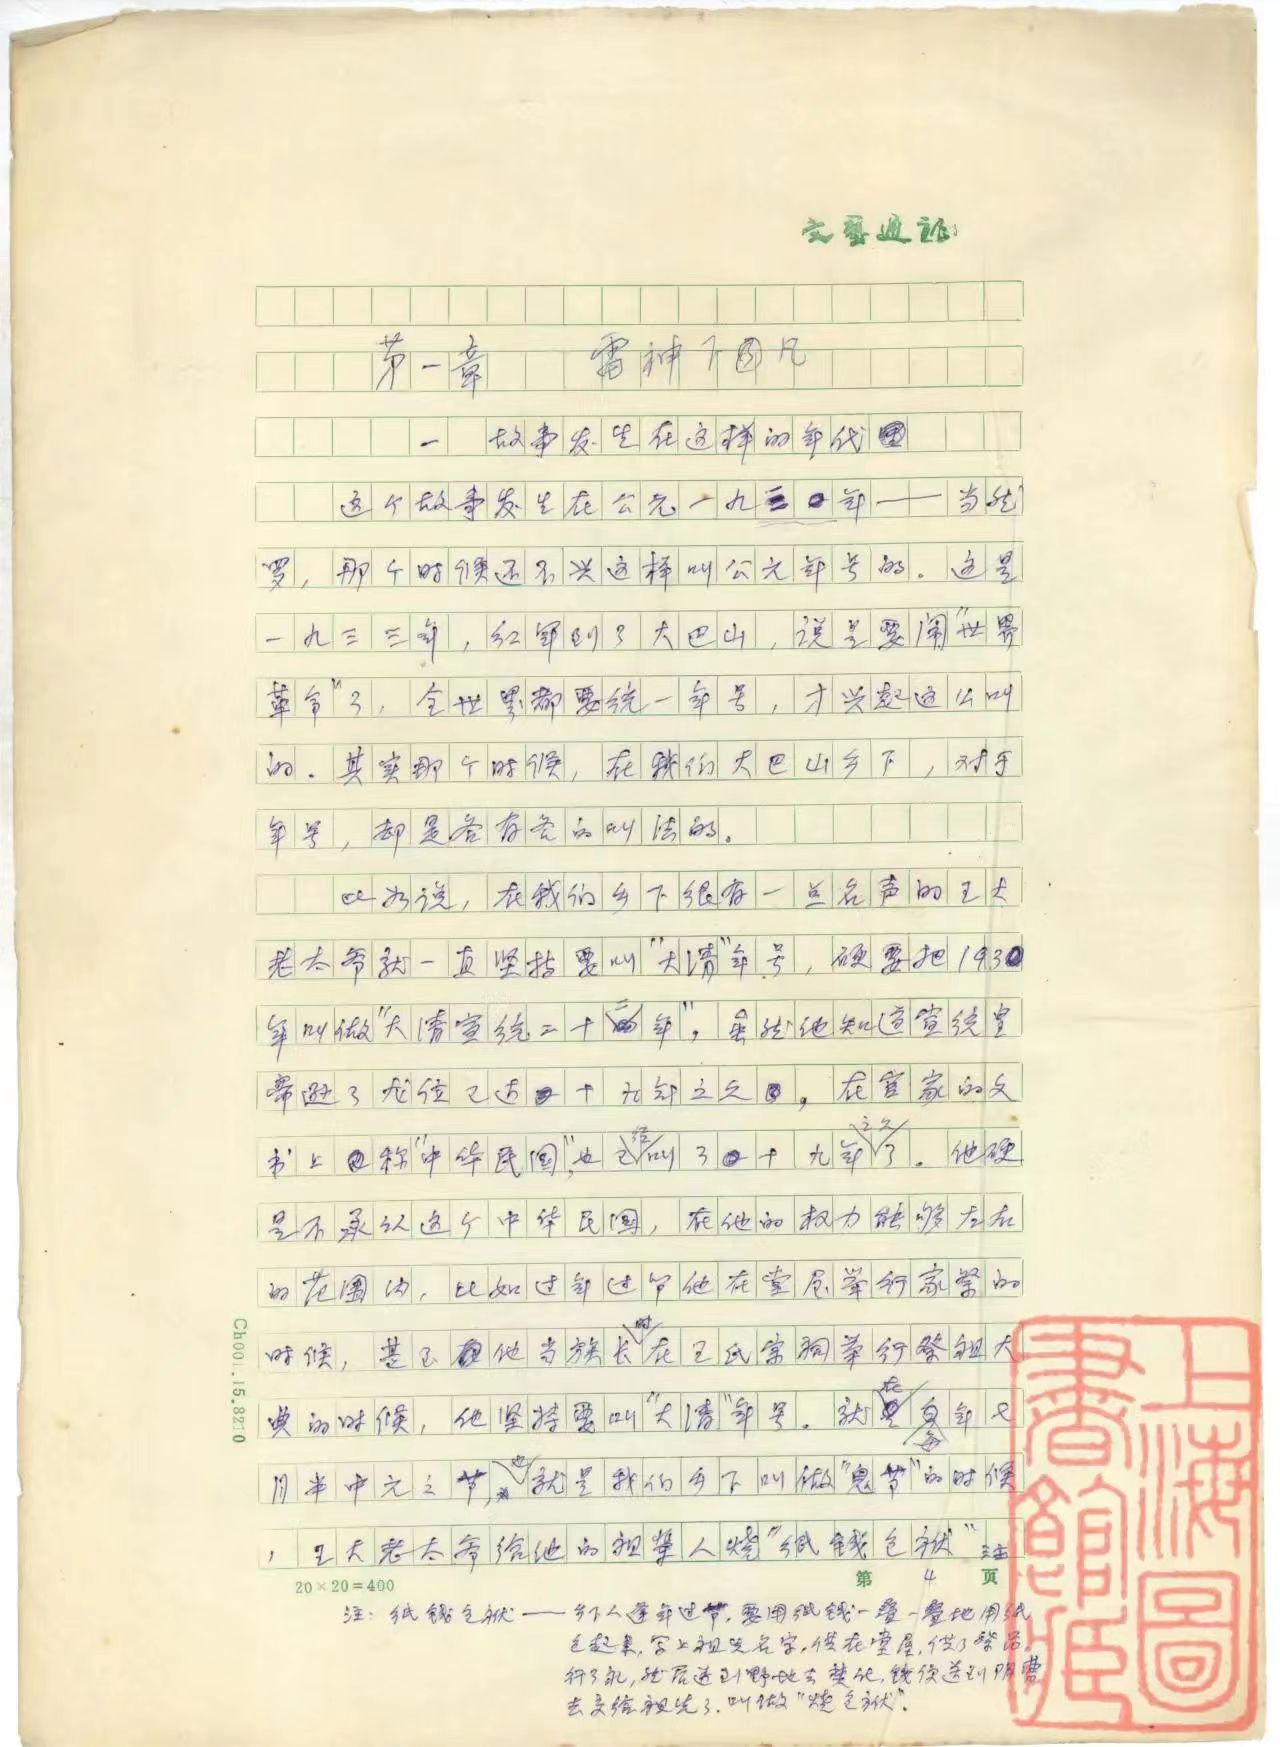 文艺通讯
第一章 雷神下凡
一 故事发生在这样的年代
这个故事发生在公元一九三〇年——当然
罗,那个时候还不兴这样叫公元年号的。这是
一九三三年,红军到了大巴山,说是要闹"世界
革命"了,全世界都要统一年号,才兴起这么叫
的。其实那个时候,在我们大巴山乡下,对于
年号,却是各有各的叫法的。
比如说,在我们乡下很有一点名声的王大
老太爷就一直坚持要叫"大清"年号,硬要把1930
年叫做"大清宣统二十二年"。虽然他知道宣统皇
帝逊了龙位已达十九年之久。在官家的文
书上称"中华民国",也已经叫了十九年之久了。他硬
是不承认这个中华民国,在他的权力能够左右
的范围内,比如过年过节他在堂屋举行家祭的
时候,甚至他当族长时在王氏宗祠举行祭祖大
典的时候,他坚持要叫"大清"年号。就在每年七
月半中元之节,也就是我们乡下叫做"鬼节"的时候
,王大老太爷给他的祖辈人烧"纸钱包袱"注
Ch001.15.8210
20×20=400
第 4 页
注:纸钱包袱——乡下人逢年过节,要用纸钱一叠一叠地用纸
包起来,写上祖先名字,供在堂屋,供了祭品,
行了礼,然后送到野地去焚化,钱便送到阴曹
去交给祖先了,叫做"烧包袱"。
上海图书馆